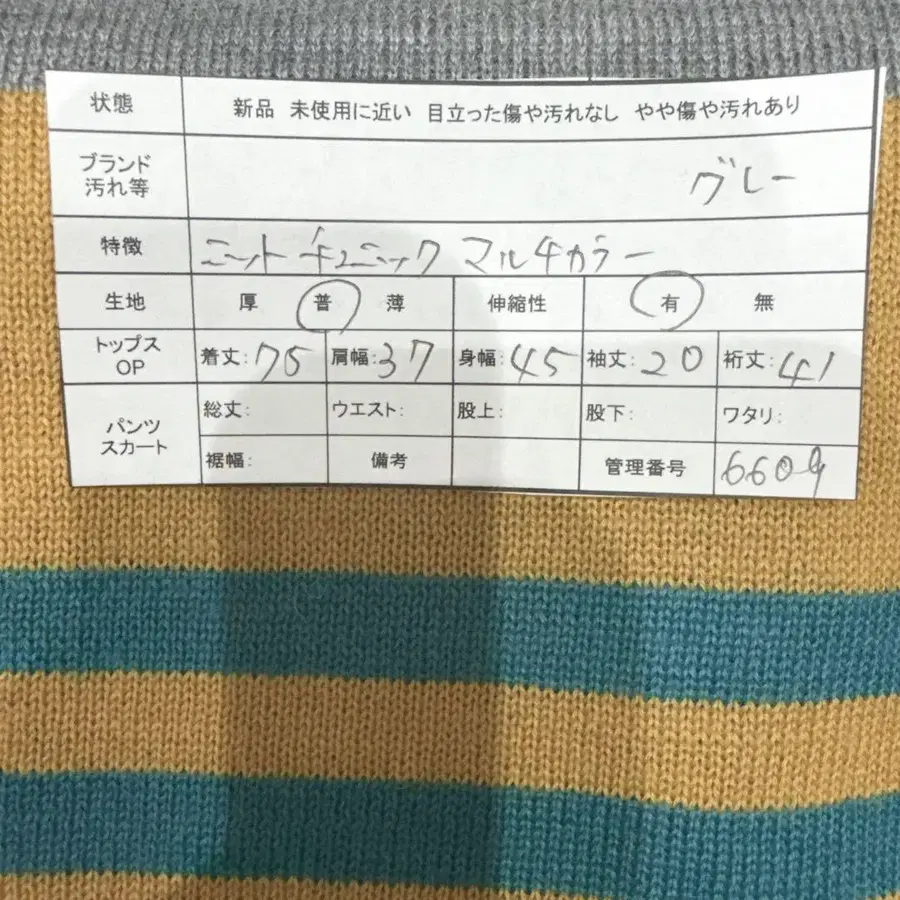 状態 新品 未使用に近い 目立った傷や汚れなし やや傷や汚れあり
ブランド
汚れ等 グレー
特徴 ニットチュニック マルチカラー
生地 厚 普 薄 伸縮性 有 無
トップス
OP 着丈:75 肩幅:37 身幅:45 袖丈:20 裄丈:41
パンツ
スカート 総丈: ウエスト: 股上: 股下: ワタリ:
裾幅: 備考 管理番号 6609